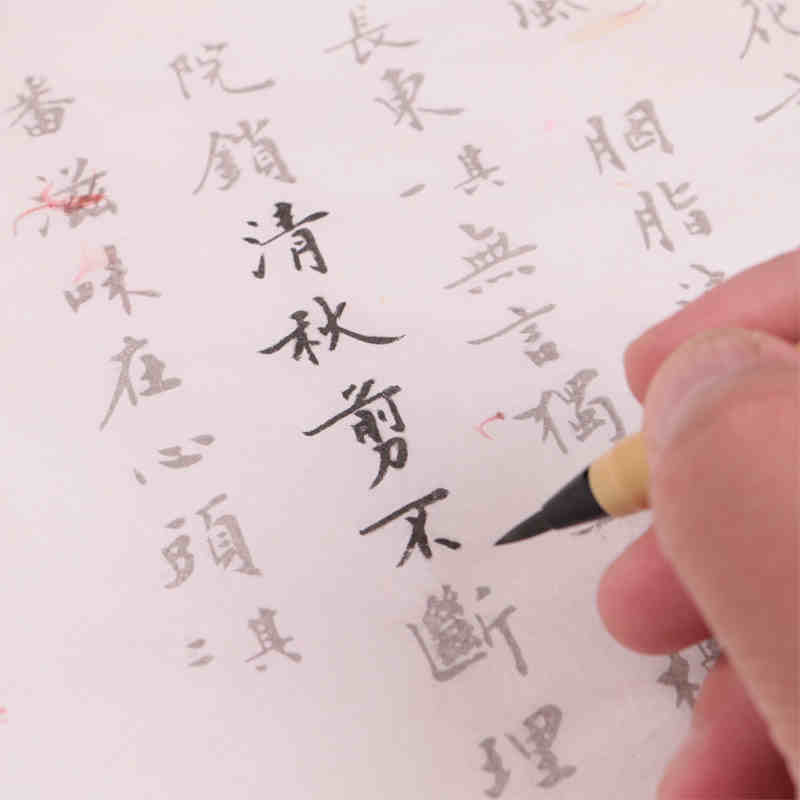 花
風胭脂
長東其一無言獨
院鎖清秋剪不斷理
番滋味在心頭其二